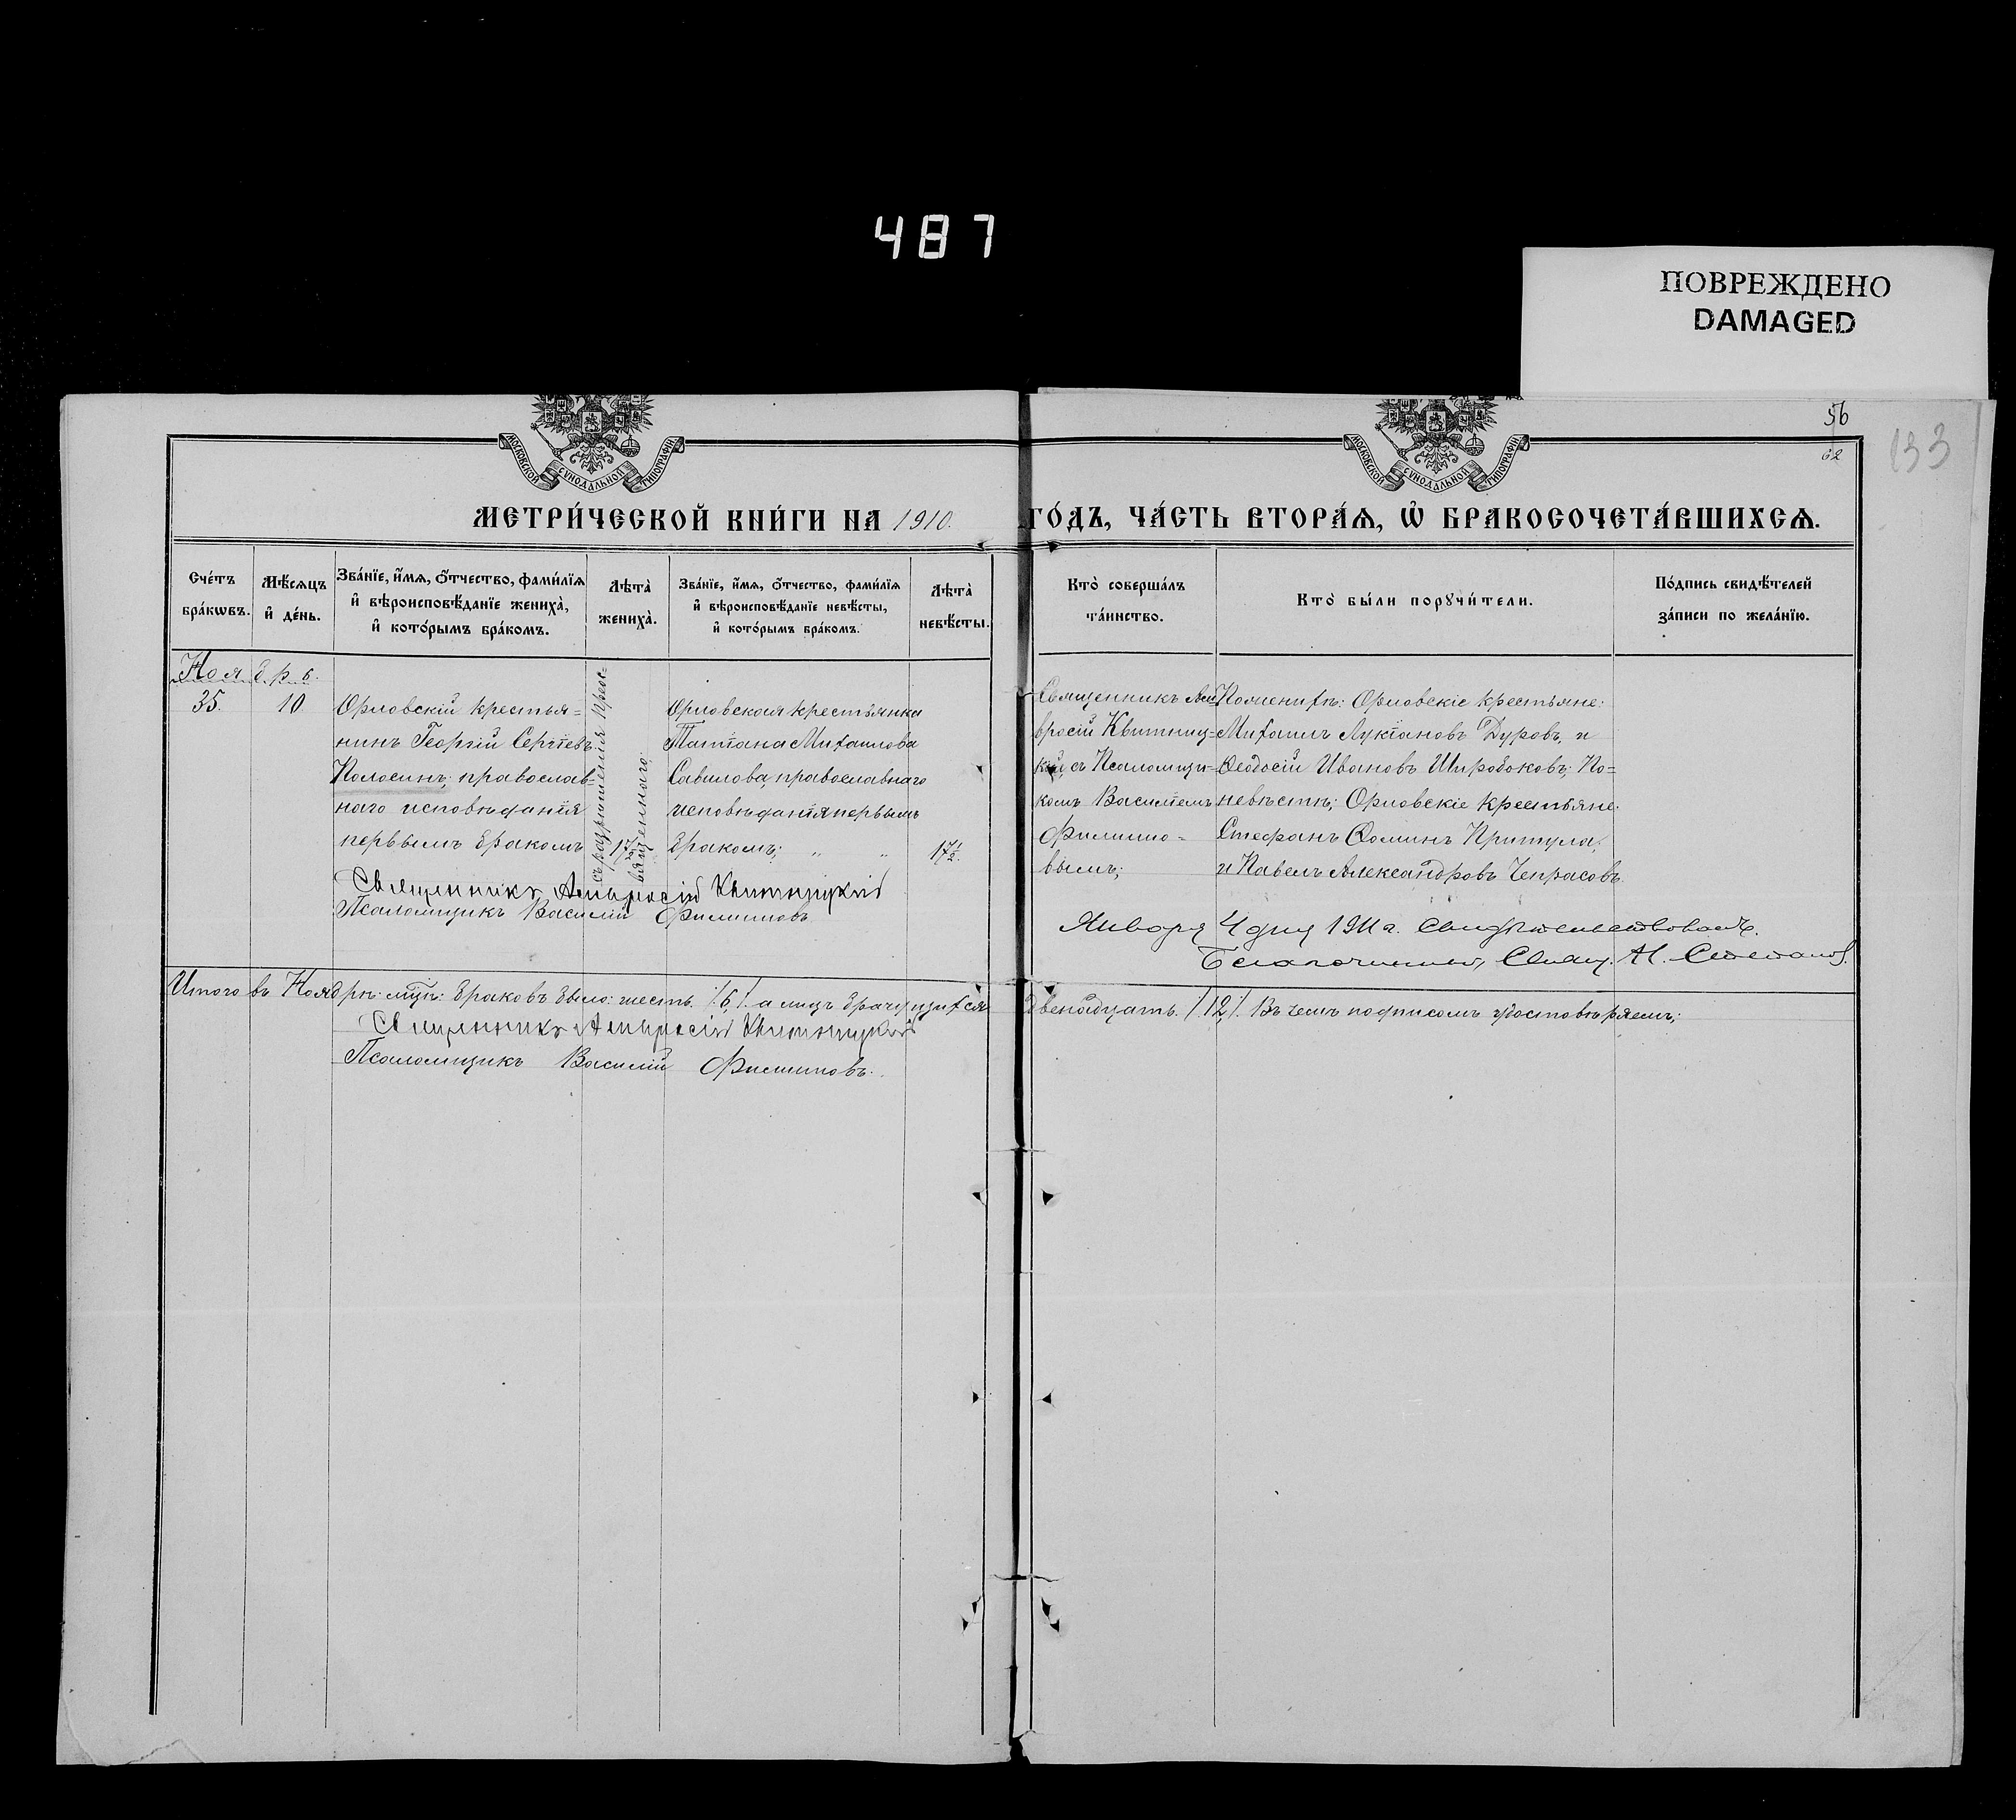 487
ПОВРЕЖДЕНО
DAMAGED
56
62
133
МОСКОВСКОЙ СѴНОДАЛЬНОЙ ТИПОГРАФІИ
МОСКОВСКОЙ СѴНОДАЛЬНОЙ ТИПОГРАФІИ
МЕТРИ́ЧЕСКОЙ КНИ́ГИ НА 1910. ГО́ДЪ, ЧА́СТЬ ВТОРА́Ѧ, Ѡ҆ БРАКОСОЧЕТА́ВШИХСѦ.
Сче́тъ бра́кѡвъ.
Мѣ́сѧцъ и҆ де́нь.
Зва́нїе, и҆́мѧ, ѻ҆́тчество, фами́лїѧ
и҆ вѣроисповѣ́данїе жениха̀,
и҆ кото́рымъ бра́комъ.
Лѣта̀ жениха̀.
Зва́нїе, и҆́мѧ, ѻ҆́тчество, фами́лїѧ
и҆ вѣроисповѣ́данїе невѣ́сты,
и҆ кото́рымъ бра́комъ.
Лѣта̀ невѣ́сты.
Кто̀ соверша́лъ та́инство.
Кто̀ бы́ли порꙋчи́тели.
По́дпись свидѣ́телей
за́писи по жела́нїю.
Ноябрь.
35.
10
Орловскій крестья=
нинъ Георгій Сергіевъ
Колосинъ, православ=
наго исповѣданія
первымъ бракомъ
съ разрѣшенія Преос=
вященнаго.
17½
Орловская крестьянка
Татіана Михаилова
Савилова, православнаго
исповѣданія первымъ
бракомъ; „ „
17½.
Священникъ Ам
вросій Квитниц=
кій, съ Псаломщи=
комъ Василіемъ
Филиппо=
вымъ;
По женихѣ: Орловскіе крестьяне:
Михаилъ Лукіановъ Дуровъ, и
Ѳеодосій Ивановъ Широбоковъ; По=
невѣстѣ; Орловскіе крестьяне.
Стефанъ Ѳоминъ Притула,
и Павелъ Александровъ Чепрасовъ
Священникъ Амвросій Квитницкій
Псаломщикъ Василій Филипповъ
Января 4 дня 1911 г. свидѣтельствовалъ.
Благочинный, Свящ. Н. Степанов.
Итого въ Ноябрѣ мцѣ: браковъ было: шесть /.6/. а лицъ брачущихся двенадцать. /.12/. Въ чемъ подписомъ удостовѣряемъ;
Священникъ Амвросій Квитницкій
Псаломщикъ Василій Филипповъ.